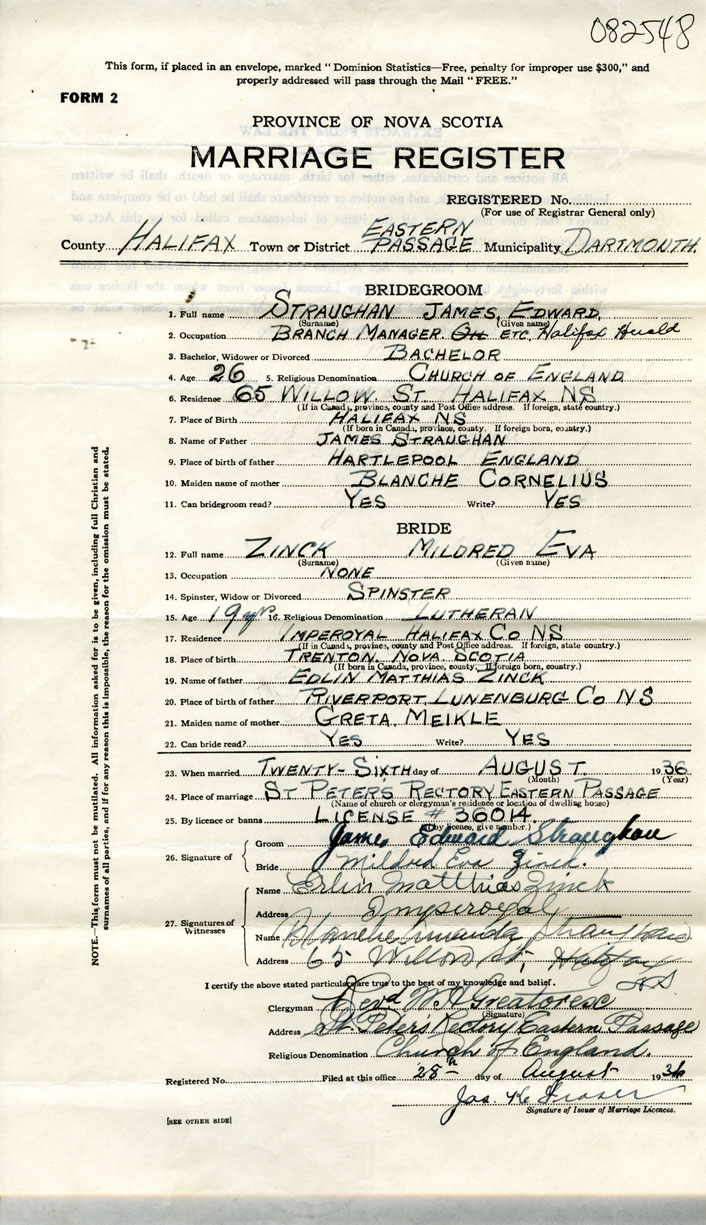 082548
This form, if placed in an envelope, marked "Dominion Statistics—Free, penalty for improper use $300," and
properly addressed will pass through the Mail "FREE."
FORM 2
PROVINCE OF NOVA SCOTIA
MARRIAGE REGISTER
REGISTERED No.
(For use of Registrar General only)
County HALIFAX Town or District EASTERN PASSAGE Municipality DARTMOUTH.
BRIDEGROOM
1. Full name STRAUGHAN JAMES, EDWARD,
(Surname) (Given name)
2. Occupation BRANCH MANAGER. ETC. Halifax Herald
3. Bachelor, Widower or Divorced BACHELOR
4. Age 26 5. Religious Denomination CHURCH OF ENGLAND
6. Residence 65 WILLOW. ST. HALIFAX NS
(If in Canada, province, county and Post Office address. If foreign, state country.)
7. Place of Birth HALIFAX NS
(If born in Canada, province, county. If foreign born, country.)
8. Name of Father JAMES STRAUGHAN
9. Place of birth of father HARTLEPOOL ENGLAND
10. Maiden name of mother BLANCHE CORNELIUS
11. Can bridegroom read? YES Write? YES
BRIDE
12. Full name ZINCK MILDRED EVA
(Surname) (Given name)
13. Occupation NONE
14. Spinster, Widow or Divorced SPINSTER
15. Age 19 yrs 16. Religious Denomination LUTHERAN
17. Residence IMPEROYAL HALIFAX CO NS
(If in Canada, province, county and Post Office address. If foreign, state country.)
18. Place of birth TRENTON. NOVA SCOTIA
(If born in Canada, province, county. If foreign born, country.)
19. Name of father EDLIN MATTHIAS ZINCK
20. Place of birth of father RIVERPORT LUNENBURG CO NS
21. Maiden name of mother GRETA. MEIKLE
22. Can bride read? YES Write? YES
23. When married TWENTY-SIXTH day of AUGUST. 1936
(Month) (Year)
24. Place of marriage ST PETER'S RECTORY EASTERN PASSAGE
(Name of church or clergyman's residence or location of dwelling house)
25. By licence or banns LICENSE # 36014.
(by licence, give number.)
26. Signature of
Groom James Edward Straughan
Bride Mildred Eva Zinck.
27. Signatures of Witnesses
Name Erlin Matthias Zinck
Address Imperoyal
Name Blanche Straughan
Address 65 Willow St, Halifax
NS
I certify the above stated particulars are true to the best of my knowledge and belief.
Clergyman Rev'd W. A. Greatorex
(Signature)
Address St. Peter's Rectory Eastern Passage
Religious Denomination Church of England.
Registered No. Filed at this office 28th day of August 1936
Jas. Fraser
Signature of Issuer of Marriage Licences.
[SEE OTHER SIDE]
NOTE.—This form must not be mutilated. All information asked for is to be given, including full Christian and
surnames of all parties, and if for any reason this is impossible, the reason for the omission must be stated.